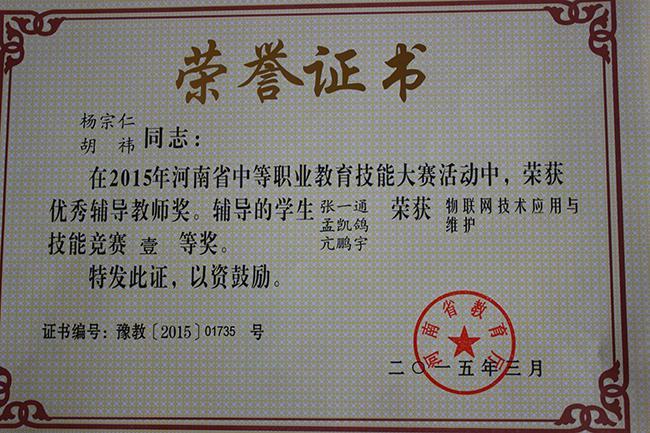 荣誉证书
杨宗仁
胡 祎 同志：
在2015年河南省中等职业教育技能大赛活动中，荣获
优秀辅导教师奖。辅导的学生 张一通 孟凯鸽 亢鹏宇 荣获 物联网技术应用与维护
技能竞赛 壹 等奖。
特发此证，以资鼓励。
证书编号：豫教〔2015〕01735 号
河南省教育厅
二〇一五年三月